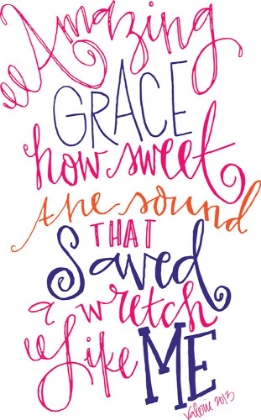 Amazing
GRACE
how sweet
the sound
THAT
Saved
a wretch
Like ME
Valerie 2013